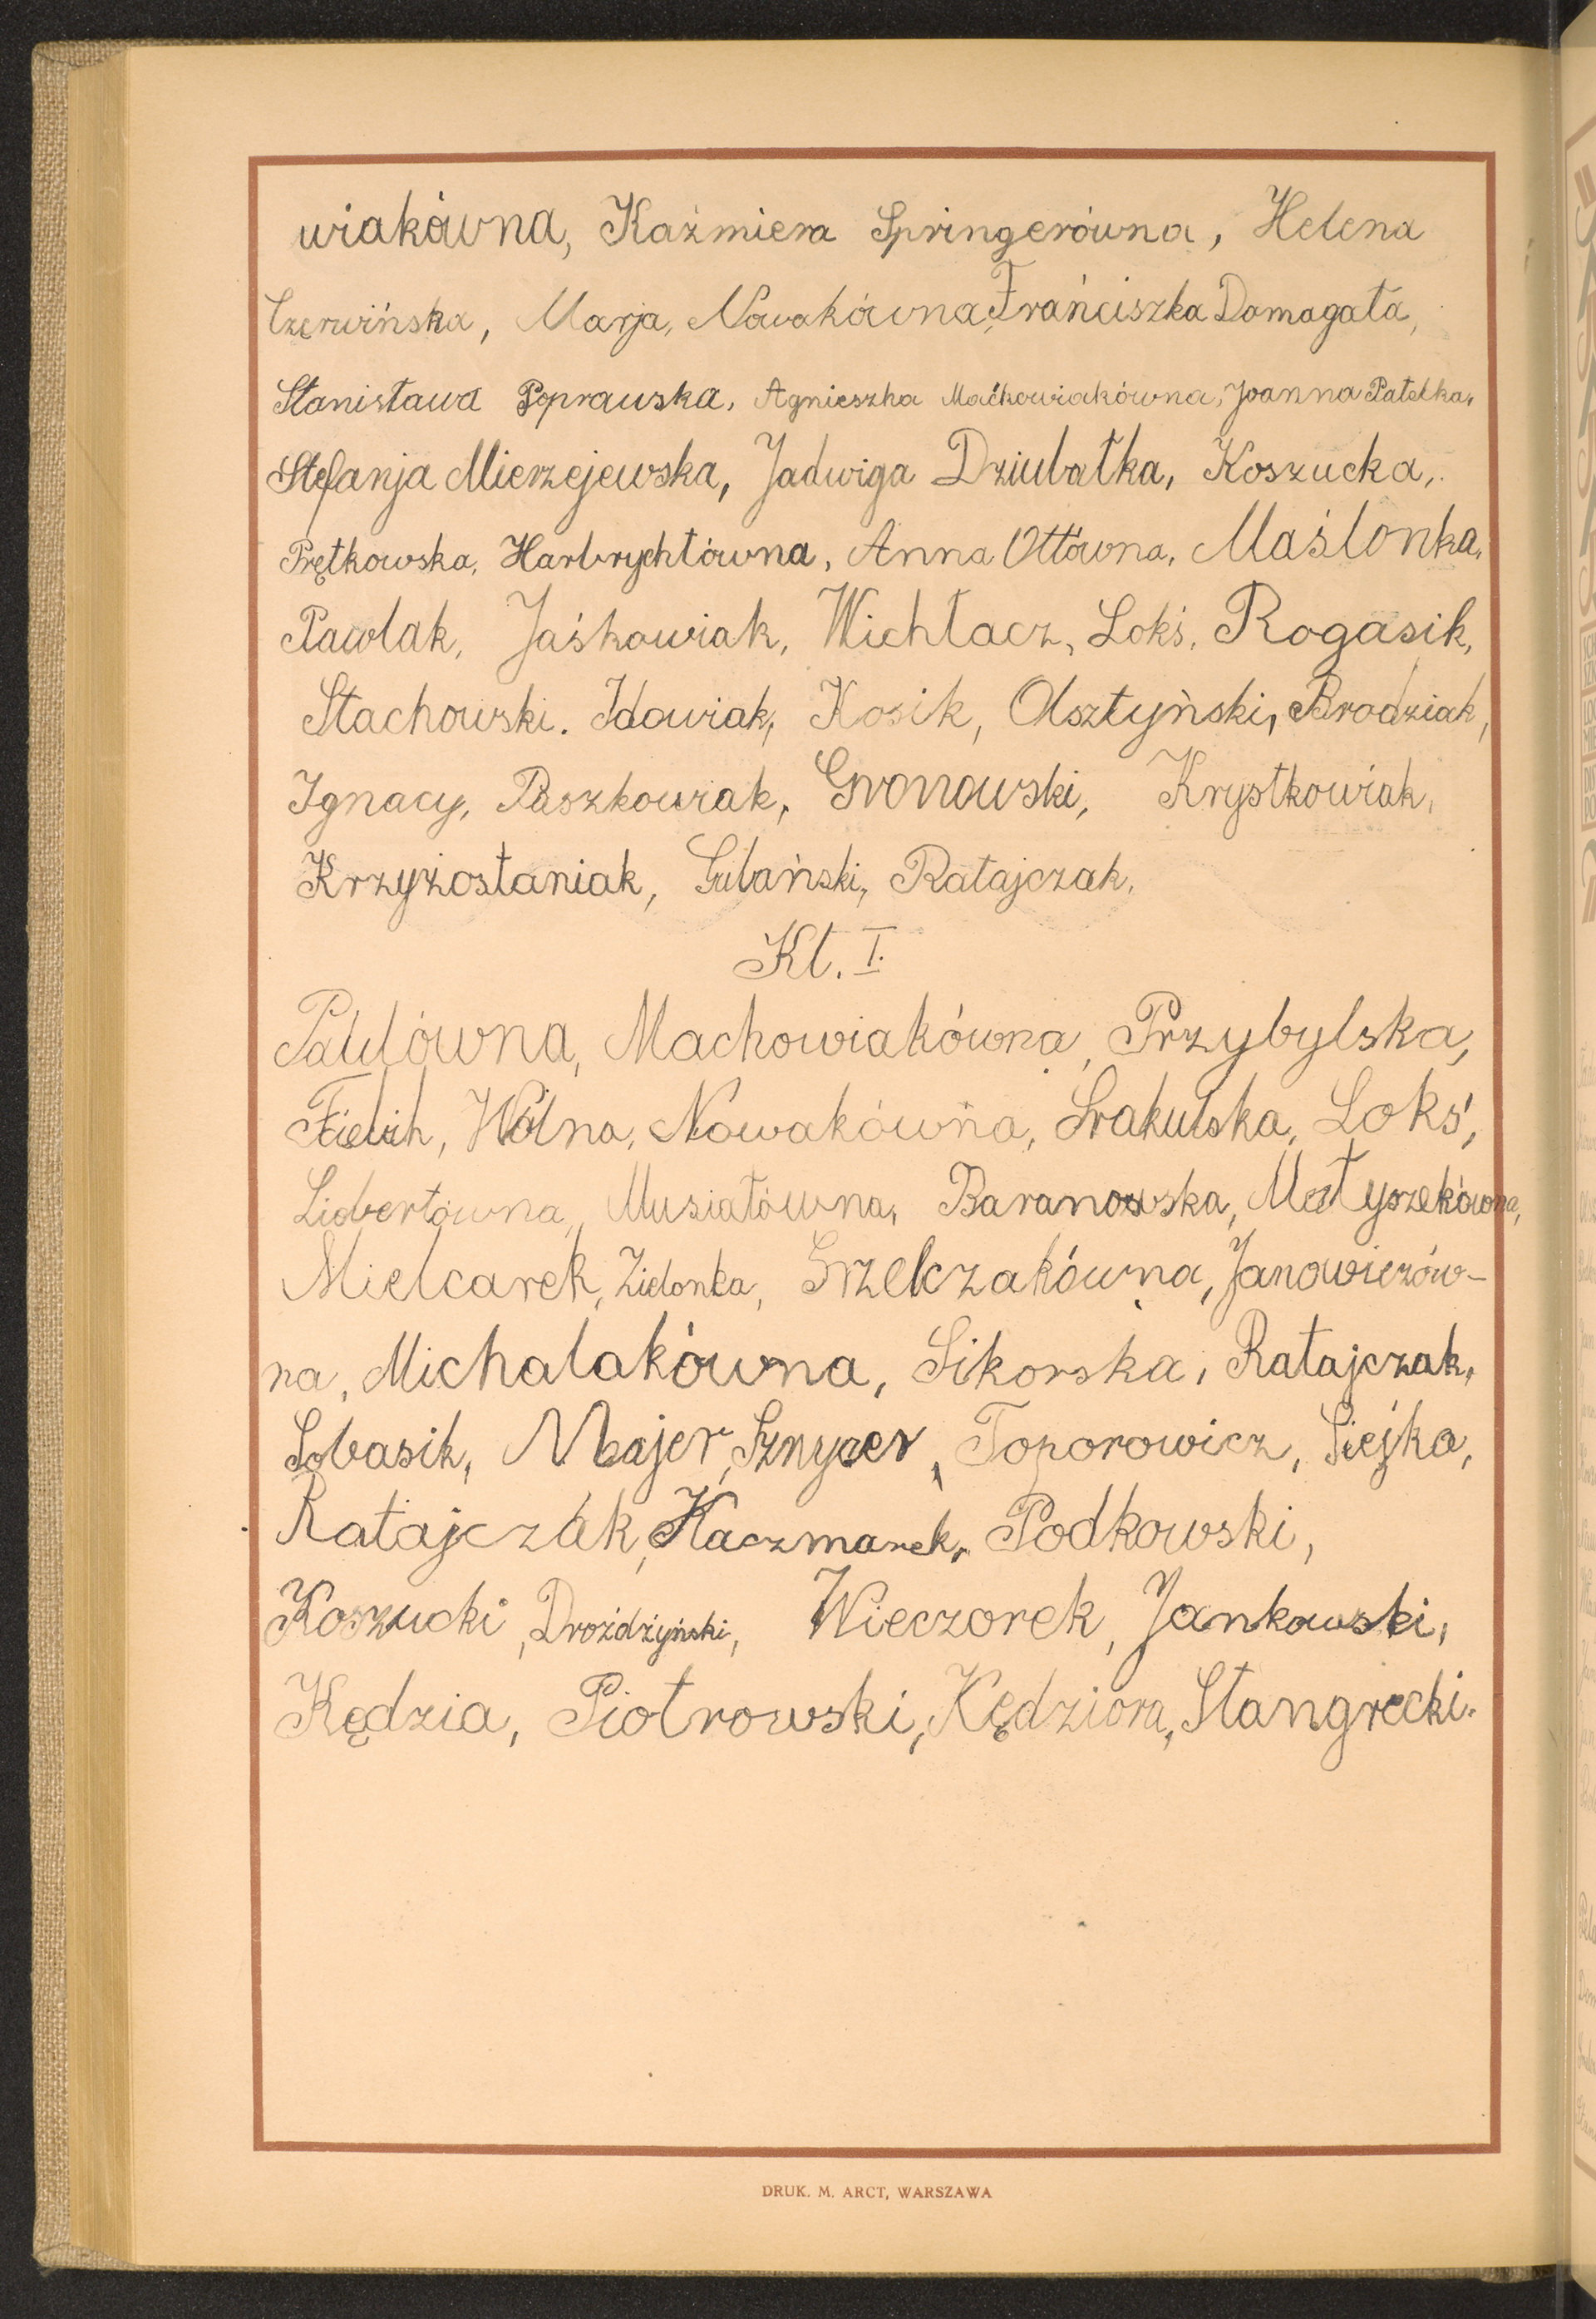 wiakówna, Kaźmiera Springerówna, Helena
Czerwińska, Marja, Nowakówna, Frańciszka Domagała,
Stanisława Poprawska, Agnieszka Maćkowiakówna, Joanna Patelka,
Stefanja Mierzejewska, Jadwiga Dziubałka, Koszucka,
Prętkowska, Harbrychtówna, Anna Ottówna, Maślonka,
Pawlak, Jaśkowiak, Wichłacz, Lokś, Rogasik,
Stachowski. Idowiak, Kosik, Olsztyński, Brodziak,
Ignacy, Paszkowiak, Gronowski, Krystkowiak,
Krzyżostaniak, Gulański, Ratajczak,
Kl. I.
Machowiakówna, Przybylska,
Wolna, Nowakówna, Srakulska, Lokś,
Libertówna, Musiałówna, Baranowska, Matyszekówna,
Mielcarek, Zielonka, Grzelczakówna, Janowiczów-
na, Michalakówna, Sikorska, Ratajczak,
Sobasik, Majer, Sznycer, Toporowicz, Siejka,
Ratajczak, Kaczmarek, Podkowski,
Koszucki, Drożdżyński, Wieczorek, Jankowski,
Kędzia, Piotrowski, Kędziora, Stangrecki.
DRUK. M. ARCT, WARSZAWA